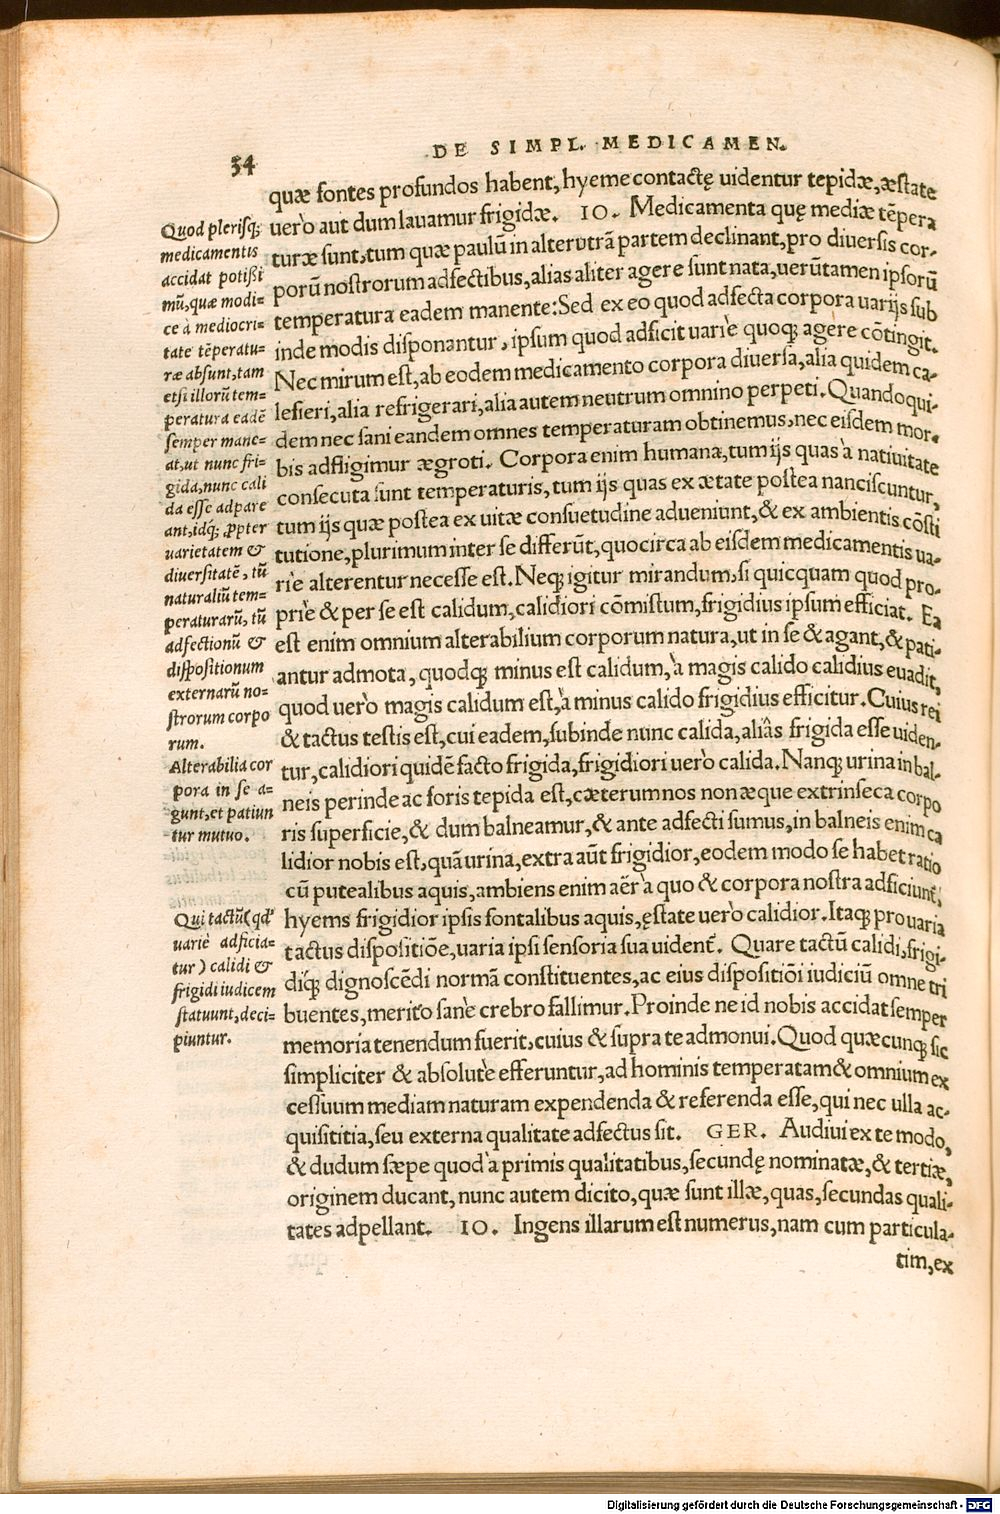 54
DE SIMPL. MEDICAMEN.
quæ fontes profundos habent, hyeme contactę uidentur tepidæ, æstate
uerò aut dum lauamur frigidæ. IO. Medicamenta quę mediæ tēpera
turæ sunt, tum quæ paulū in alterutrā partem declinant, pro diuersis cor-
porū nostrorum adfectibus, alias aliter agere sunt nata, uerūtamen ipsorū
temperatura eadem manente: Sed ex eo quod adfecta corpora uarijs sub
inde modis disponantur, ipsum quod adficit uariè quoq; agere cōtingit.
Nec mirum est, ab eodem medicamento corpora diuersa, alia quidem ca-
lefieri, alia refrigerari, alia autem neutrum omnino perpeti. Quandoqui-
dem nec sani eandem omnes temperaturam obtinemus, nec eisdem mor-
bis adfligimur ægroti. Corpora enim humana, tum ijs quas à natiuitate
consecuta sunt temperaturis, tum ijs quas ex ætate postea nanciscuntur,
tum ijs quæ postea ex uitæ consuetudine adueniunt, & ex ambientis cōsti
tutione, plurimum inter se differūt, quocirca ab eisdem medicamentis ua-
riè alterentur necesse est. Neq; igitur mirandum, si quicquam quod pro-
priè & per se est calidum, calidiori cōmistum, frigidius ipsum efficiat. Ea
est enim omnium alterabilium corporum natura, ut in se & agant, & pati-
antur admota, quodq; minus est calidum, à magis calido calidius euadit,
quod uerò magis calidum est, à minus calido frigidius efficitur. Cuius rei
& tactus testis est, cui eadem, subinde nunc calida, aliâs frigida esse uiden-
tur, calidiori quidē facto frigida, frigidiori uerò calida. Nanq; urina in bal-
neis perinde ac foris tepida est, cæterum nos non æque extrinseca corpo
ris superficie, & dum balneamur, & ante adfecti sumus, in balneis enim ca
lidior nobis est, quā urina, extra aūt frigidior, eodem modo se habet ratio
cū putealibus aquis, ambiens enim aër à quo & corpora nostra adficiunt̄,
hyems frigidior ipsis fontalibus aquis, ęstate uerò calidior. Itaq; pro uaria
tactus dispositiōe, uaria ipsi sensoria sua uident̄. Quare tactū calidi, frigi-
diq́; dignoscēdi normā constituentes, ac eius dispositiōi iudiciū omne tri
buentes, meritò sanè crebro fallimur. Proinde ne id nobis accidat semper
memoria tenendum fuerit, cuius & supra te admonui. Quod quæcunq; sic
simpliciter & absolutè efferuntur, ad hominis temperatam & omnium ex
cessuum mediam naturam expendenda & referenda esse, qui nec ulla ac-
quisititia, seu externa qualitate adfectus sit. GER. Audiui ex te modo,
& dudum sæpe quod à primis qualitatibus, secundę nominatæ, & tertiæ,
originem ducant, nunc autem dicito, quæ sunt illæ, quas, secundas quali-
tates adpellant. IO. Ingens illarum est numerus, nam cum particula-
tim, ex
Quod plerisq;
medicamentis
accidat potißi
mū, quæ modi=
ce à mediocri=
tate tēperatu=
ræ absunt, tam
etsi illorū tem=
peratura eadē
semper mane=
at, ut nunc fri=
gida, nunc cali
da esse adpare
ant, idq; ꝓpter
uarietatem &
diuersitatē, tū
naturaliū tem=
peraturarū, tū
adfectionū &
dispositionum
externarū no=
strorum corpo
rum.
Alterabilia cor
pora in se a=
gunt, et patiun
tur mutuo.
Qui tactū (qđ
uariè adficia=
tur) calidi &
frigidi iudicem
statuunt, deci=
piuntur.
Digitalisierung gefördert durch die Deutsche Forschungsgemeinschaft - DFG